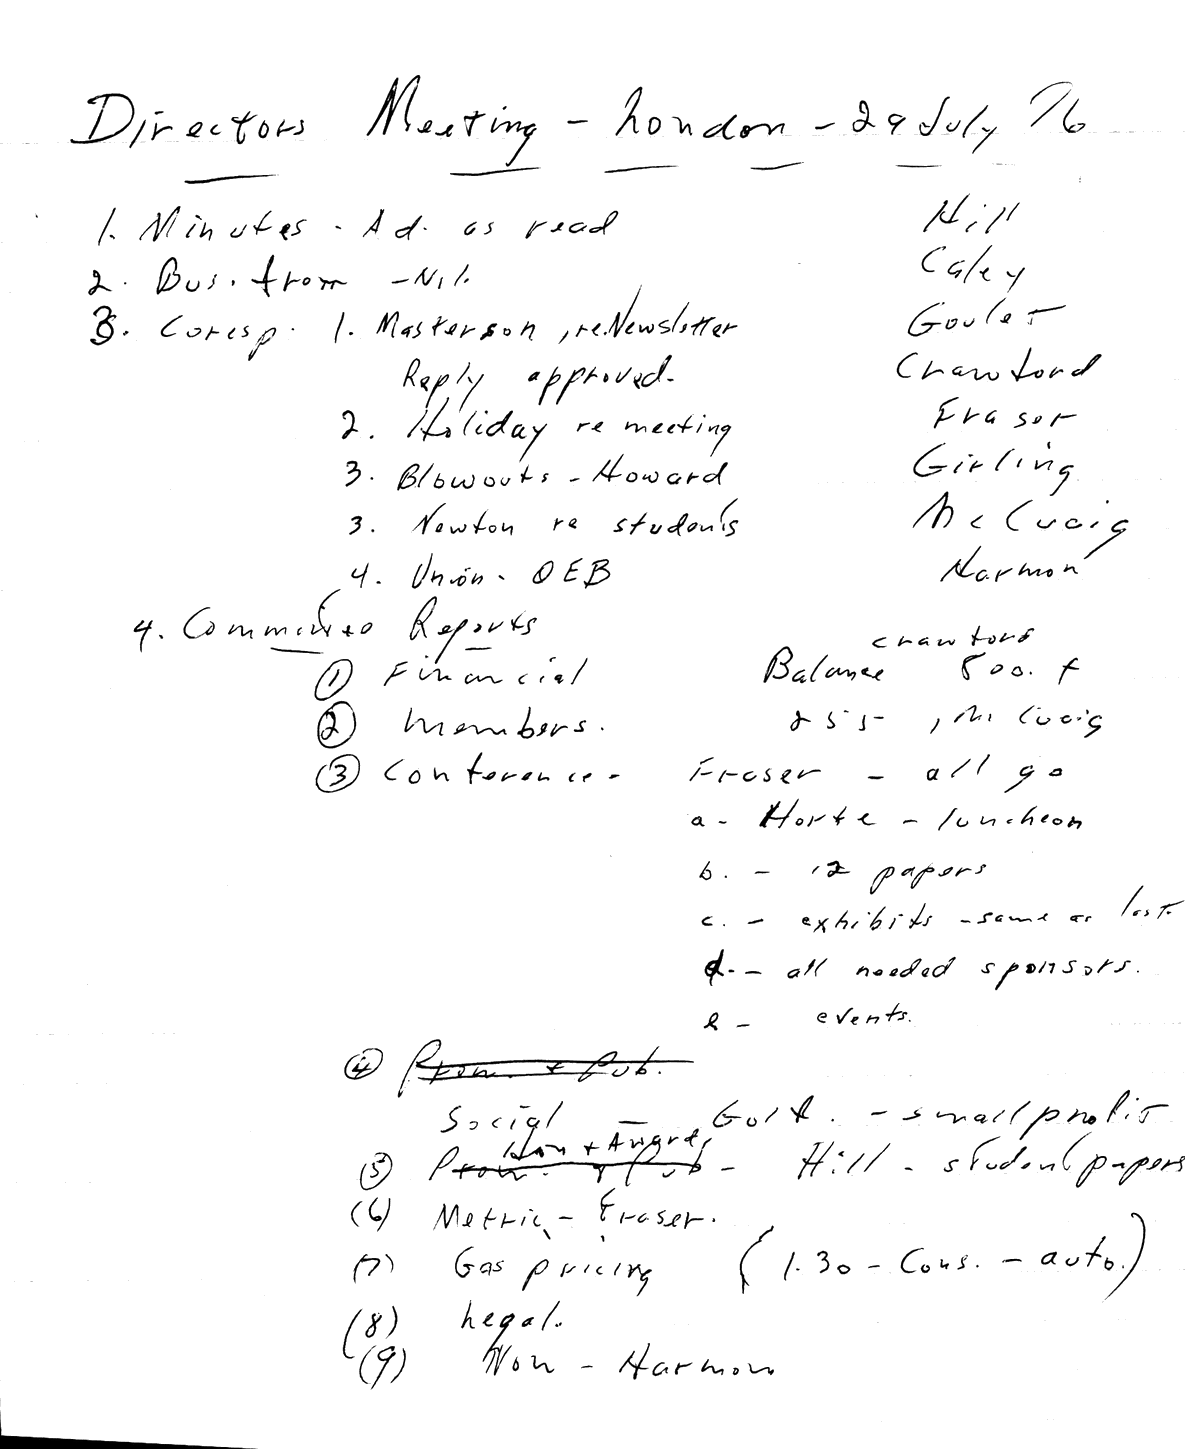 Directors Meeting - London - 29 July 76
1. Minutes - Ad. as read
Hill
2. Bus. from - Nil.
Caley
3. Coresp. 1. Masterson, re. Newsletter
Goulet
Reply approved.
Crawford
2. Holiday re meeting
Fraser
3. Blowouts - Howard
Girling
3. Newton re students
McCuaig
4. Union - OEB
Harmon
4. Committee Reports
Crawford
① Financial Balance 500. +
② Members. 255 , McCuaig
③ Conference - Fraser - all go
a - Horte - luncheon
b. - 12 papers
c. - exhibits - same as last.
d. - all needed sponsors.
e - events.
④ Prom. + Pub.
Social - Golf. - small profit
Hon + Award,
⑤ Prom. + Pub - Hill - student papers
(6) Metric - Fraser.
(7) Gas pricing (1.30 - Cons. - auto.)
(8) Legal.
(9) Nom - Harmon